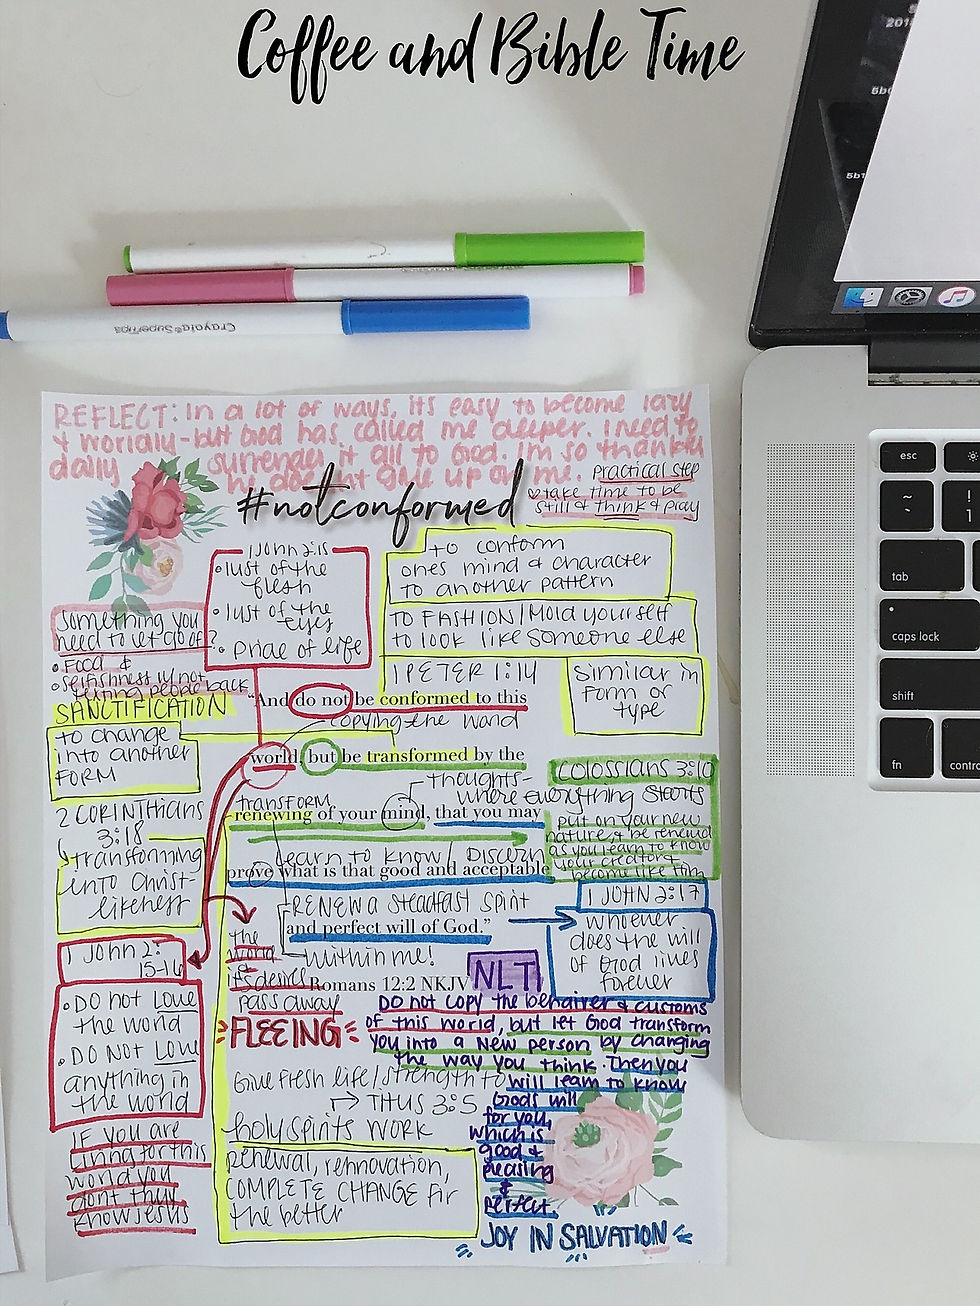 Coffee and Bible Time
2018
5b
5b1
Crayola SuperTips
REFLECT: In a lot of ways, its easy to become lazy
& worldly - but God has called me deeper. I need to
daily surrender it all to God. Im so thankful
he does not give up on me.
practical step
take time to be
still & think & pray
#notconformed
1 John 2:15
• lust of the
flesh
• lust of the
eyes
• pride of life
to conform
ones mind & character
to another pattern
TO FASHION/Mold yourself
to look like someone else
1 PETER 1:14
Similar in
Form or
type
Something you
need to let go of?
• Food &
• selfishness w/ not
texting people back
SANCTIFICATION
to change
into another
FORM
2 CORINTHIANS
3:18
transforming
INTO Christ-
likeness
1 John 2:
15-16
• DO not LOVE
the world
• DO NOT LOVE
anything in
the world
IF you are
living for this
world you
dont truly
know Jesus
"And do not be conformed to this
copying the world
world, but be transformed by the
thoughts-
where everything starts
transform
renewing of your mind, that you may
learn to know/ Discern
prove what is that good and acceptable
RENEW a steadfast spirit
and perfect will of God."
within me!
Romans 12:2 NKJV
the
world
&
its desires
pass away
COLOSSIANS 3:10
put on your new
nature, & be renewed
as you learn to know
your creator &
become like him
1 JOHN 2:17
whoever
does the will
of God lives
forever
NLT
DO not copy the behavior & customs
of this world, but let God transform
you into a new person by changing
the way you think. Then you
will learn to know
Gods will
for you,
which is
good &
pleasing
&
perfect.
FLEEING
Give fresh life/strength to
TITUS 3:5
holy spirits work
renewal, rennovation,
COMPLETE CHANGE for
the better
JOY IN SALVATION
esc
~
!
1
tab
caps lock
shift
fn
contro